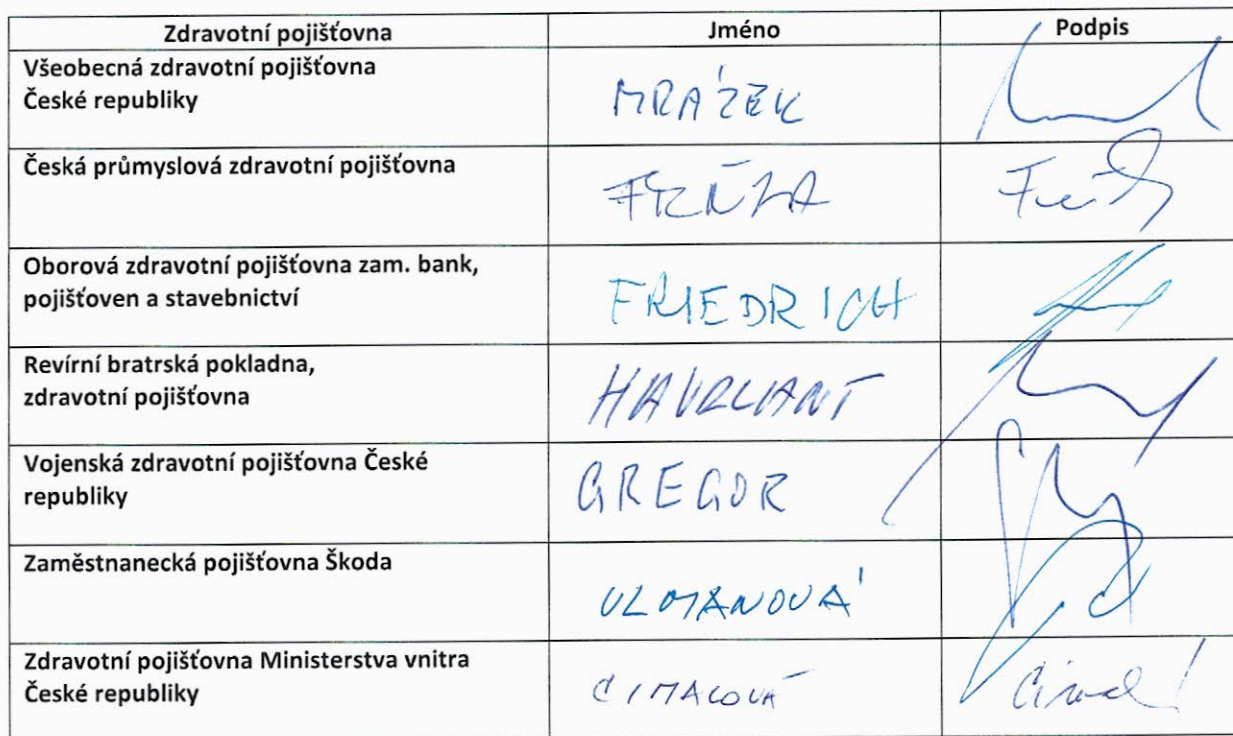 Zdravotní pojišťovna Jméno Podpis
Všeobecná zdravotní pojišťovna
České republiky
MRÁZEK
Česká průmyslová zdravotní pojišťovna
Oborová zdravotní pojišťovna zam. bank,
pojišťoven a stavebnictví
FRIEDRICH
Revírní bratrská pokladna,
zdravotní pojišťovna
HAVRLANT
Vojenská zdravotní pojišťovna České
republiky
GREGOR
Zaměstnanecká pojišťovna Škoda
ULMANOVÁ
Zdravotní pojišťovna Ministerstva vnitra
České republiky